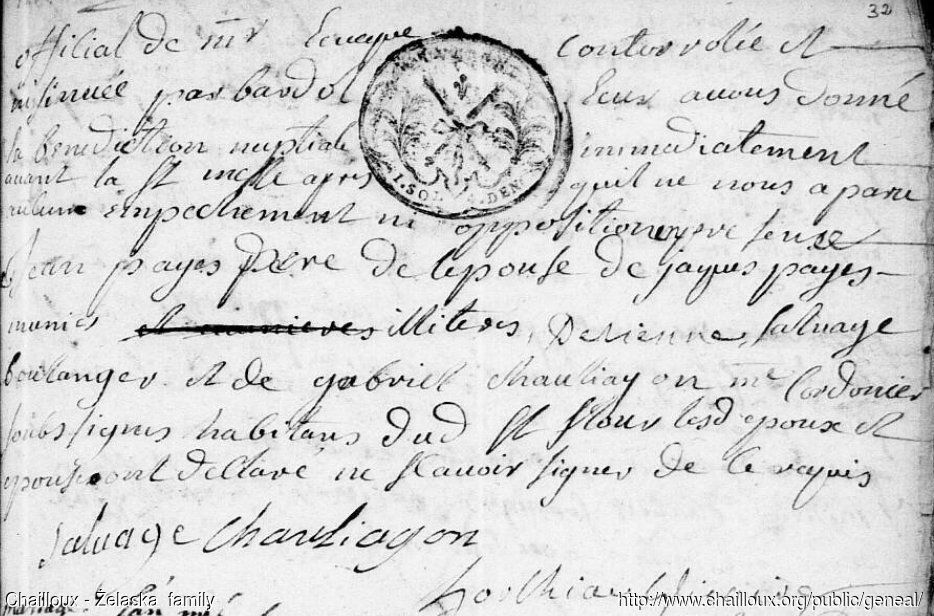 32
official de mr Leveque controrolée et
insinuée par bardol Leur avons donné
la benediction nuptiale immediatement
avant la st messe apres quil ne nous a paru
aucun empechement ni opposition presense
jean pages pere de lepouse de jaques pages
et illiteres, Detienne, salvage
boulanger et de gabriel chauliagon me Cordonier
soubs signes habitans dud st flour lesd epoux et
epouse ont declaré ne scavoir signer de ce requis
Salvage Chauliagon
mariage lan mil
Chailloux - Żelaska family
http://www.chailloux.org/public/geneal/